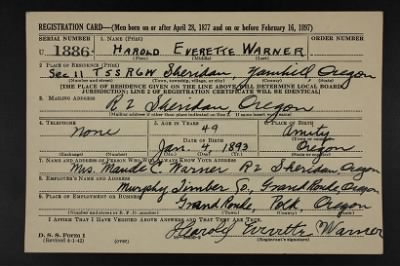 REGISTRATION CARD—(Men born on or after April 28, 1877 and on or before February 16, 1897)
SERIAL NUMBER 1. NAME (Print) ORDER NUMBER
U 1886 HAROLD EVERETTE WARNER
(First) (Middle) (Last)
2. PLACE OF RESIDENCE (Print)
Sec 11 T5S R6W Sheridan, Yamhill Oregon
(Number and street) (Town, township, village, or city) (County) (State)
[THE PLACE OF RESIDENCE GIVEN ON THE LINE ABOVE WILL DETERMINE LOCAL BOARD
JURISDICTION; LINE 2 OF REGISTRATION CERTIFICATE WILL BE IDENTICAL]
3. MAILING ADDRESS
R2 Sheridan, Oregon
[Mailing address if other than place indicated on line 2. If same insert word same]
4. TELEPHONE 5. AGE IN YEARS 6. PLACE OF BIRTH
None 49 Amity
DATE OF BIRTH
Jan. 4, 1893 Oregon
(Exchange) (Number) (Mo.) (Day) (Yr.) (State or country)
7. NAME AND ADDRESS OF PERSON WHO WILL ALWAYS KNOW YOUR ADDRESS
Mrs. Maude C. Warner R2 Sheridan, Oregon
8. EMPLOYER'S NAME AND ADDRESS
Murphy Timber Co, Grand Ronde, Oregon
9. PLACE OF EMPLOYMENT OR BUSINESS
Grand Ronde, Polk Oregon
(Number and street or R. F. D. number) (Town) (County) (State)
I AFFIRM THAT I HAVE VERIFIED ABOVE ANSWERS AND THAT THEY ARE TRUE.
D. S. S. Form 1
(Revised 4-1-42) (over) Harold Everette Warner
(Registrant's signature)